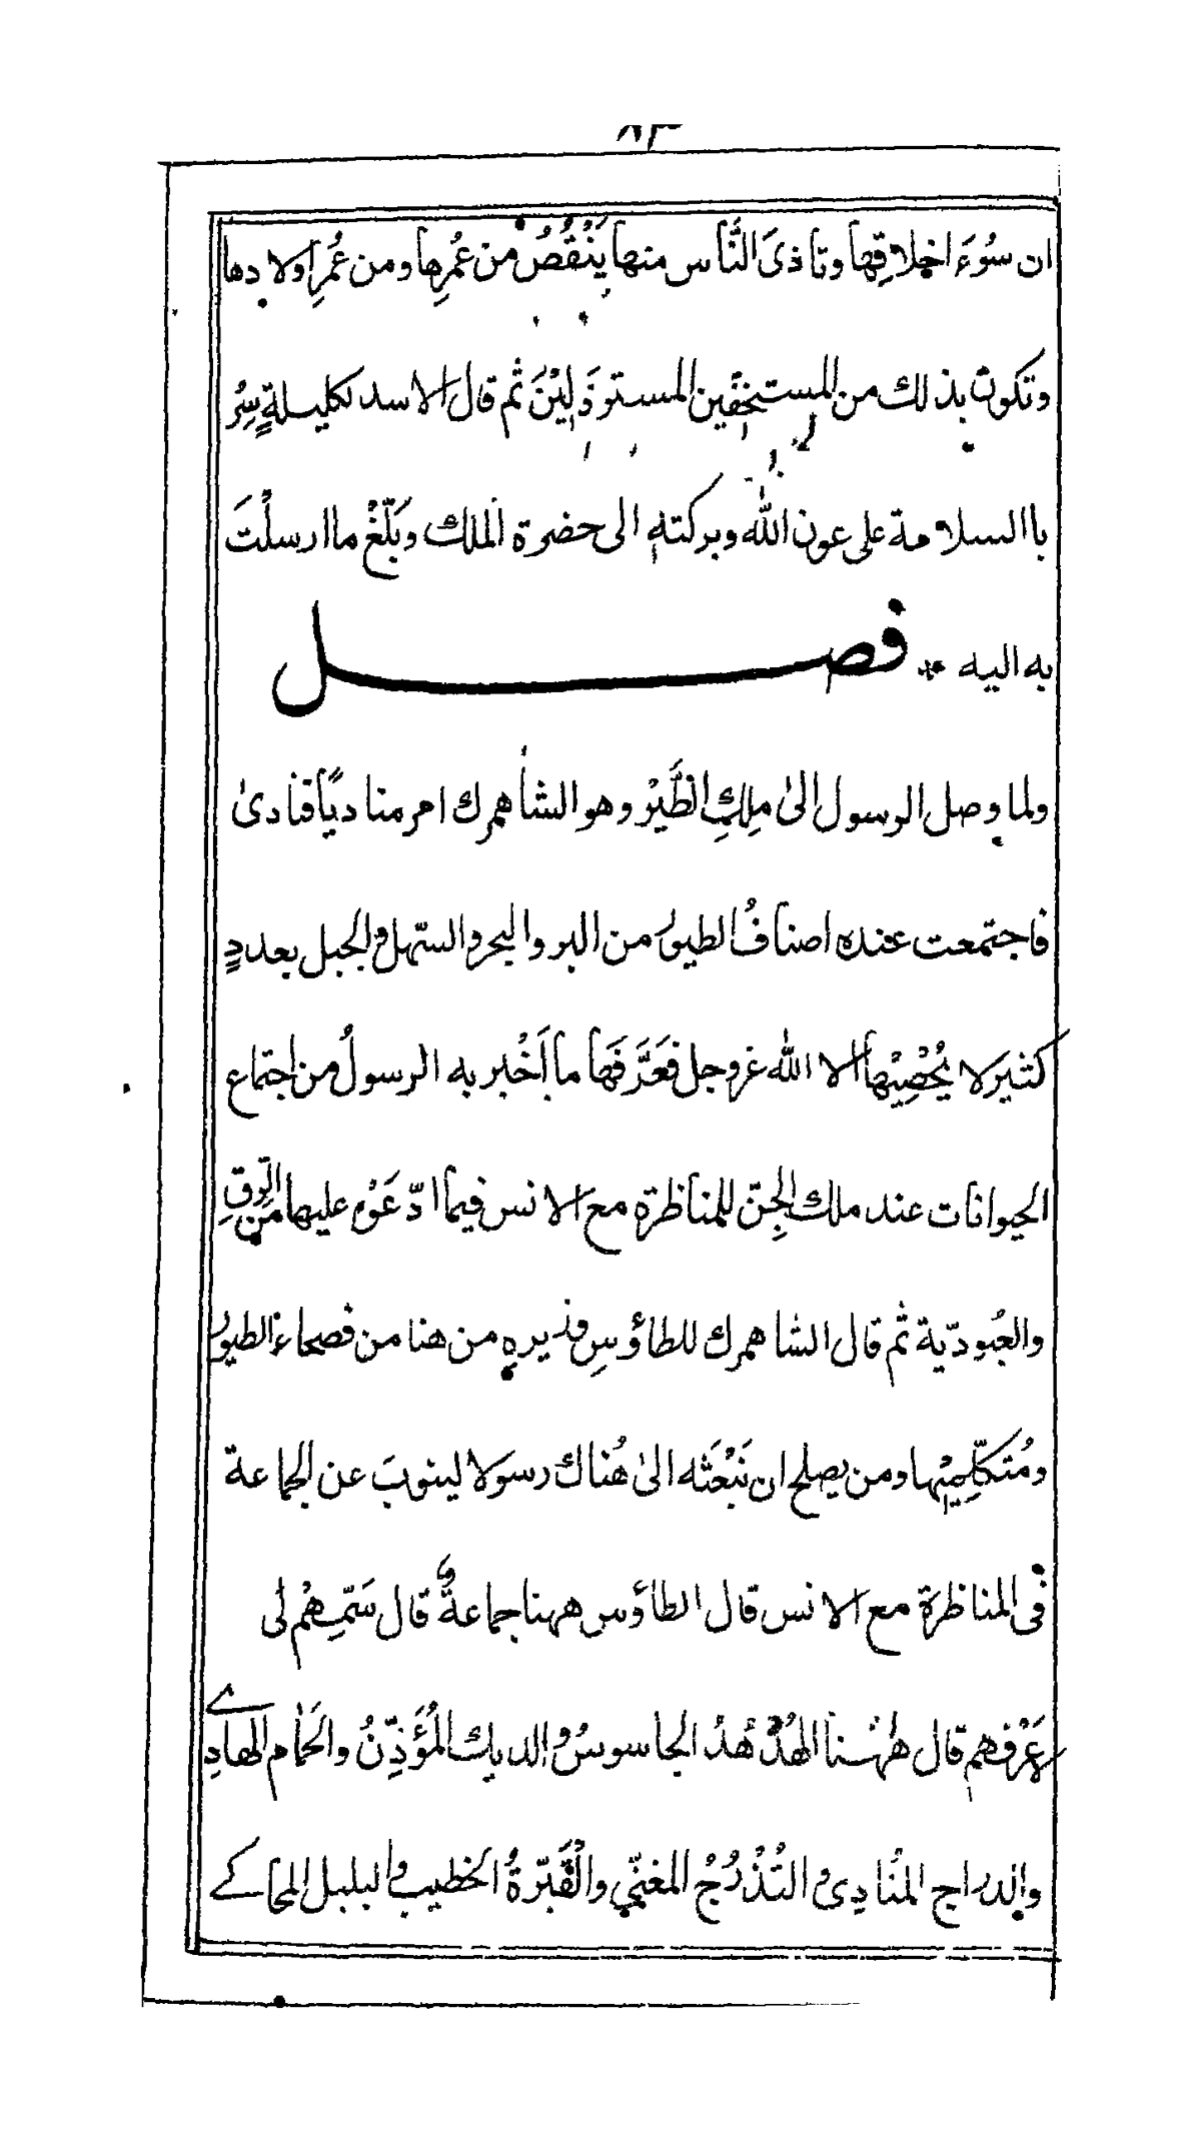 ٨٣
ان سُوءَ اخلاقِها وتاذىَ النَّاس منها يَنْقُصُ من عُمرِها ومن عُمرِ اولادها
وتكون بذلك من المستخفّين المستوذَلِيْنَ ثم قال الاسد لكليلةٍ سِرُ
باالسلامة على عون الله وبركته الى حضرة الملك وبَلّغْ ما ارسلْتَ
به اليه * فصل
ولما وصل الرسول الىٰ مِلِكِ الطَّيْر وهو الشاهمرك امر مناديًا فنادىٰ
فاجتمعت عنده اصنافُ الطيور من البر والبحر والسّهل والجبل بعددٍ
كثير لا يُحْصِيْها الا الله عز وجل فعَرَّفَها ما اَخْبر به الرسولُ من اجتماع
الحيوانات عند ملك الجِنّ للمناظرة مع الانس فيما ادّعَوْه عليها من الرّقِ
والعُبوديّة ثم قال الشاهمرك للطاؤسِ وزيره من هنا من فصحاء الطيور
ومُتكلّمِيْها ومن يصلح ان نَبْعَثه الىٰ هُناك رسولا لينوبَ عن الجماعة
فى المناظرة مع الانس قال الطاؤس ههنا جماعةٌ قال سَمّهِمْ لى
عَرْفهم قال هٰهُنا الهُدْ هُدُ الجاسوسُ والديك المُؤَذِّنُ والحَمام الهادے
والدراج المُنادِى والتُذْرُجُ المغنّي والقُبّرةُ الخطيب والبلبل المحاكے